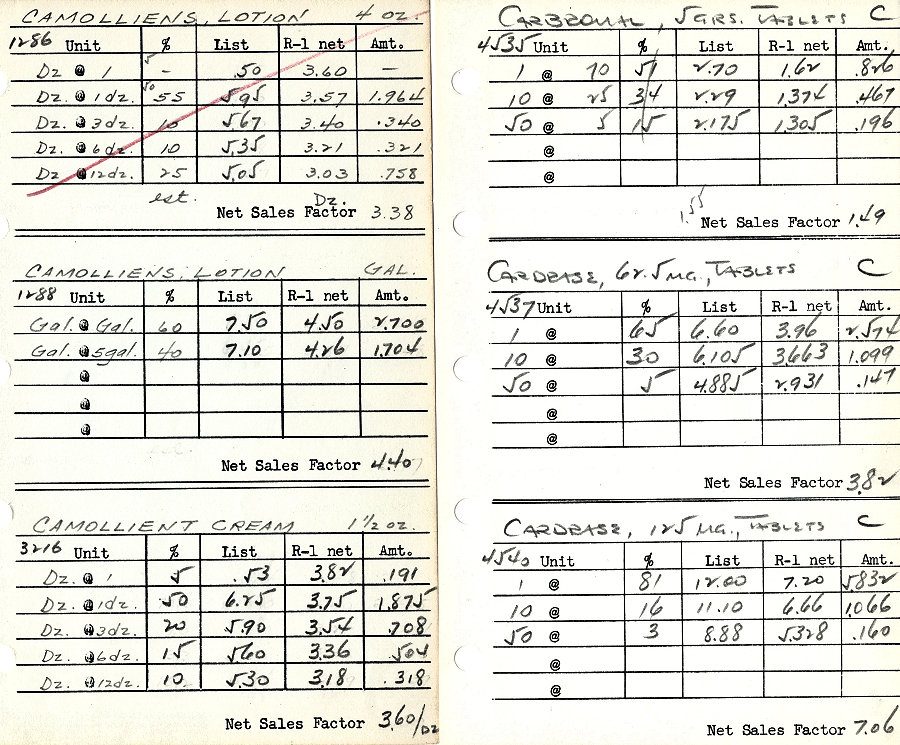 CAMOLLIENS, LOTION 4 OZ.
1286 Unit % List R-1 net Amt.
Dz @ 1 5 - .50 3.60 —
Dz. @ 1dz. 50 55 5.95 3.57 1.964
Dz. @ 3dz. 10 5.67 3.40 .340
Dz. @ 6dz. 10 5.35 3.21 .321
Dz @ 12dz. 25 5.05 3.03 .758
est. Dz.
Net Sales Factor 3.38
CAMOLLIENS, LOTION GAL.
1288 Unit % List R-1 net Amt.
Gal. @ Gal. 60 7.50 4.50 2.700
Gal. @ 5gal. 40 7.10 4.26 1.704
@
@
@
Net Sales Factor 4.40
CAMOLLIENT CREAM 1 1/2 oz.
3216 Unit % List R-1 net Amt.
Dz. @ 1 5 .53 3.82 .191
Dz. @ 1dz. 50 6.25 3.75 1.875
Dz. @ 3dz. 20 5.90 3.54 .708
Dz. @ 6dz. 15 5.60 3.36 .504
Dz. @ 12dz. 10 5.30 3.18 .318
Net Sales Factor 3.60/DZ
CARBROMAL, 5 GRS. TABLETS C
4535 Unit % List R-1 net Amt.
1 @ 70 51 2.70 1.62 .826
10 @ 25 34 2.29 1.374 .467
50 @ 5 15 2.175 1.305 .196
@
@
1.55
Net Sales Factor 1.49
CARDBASE, 62.5 MG., TABLETS C
4537 Unit % List R-1 net Amt.
1 @ 65 6.60 3.96 2.574
10 @ 30 6.105 3.663 1.099
50 @ 5 4.885 2.931 .147
@
@
Net Sales Factor 3.82
CARDBASE, 125 MG., TABLETS C
4540 Unit % List R-1 net Amt.
1 @ 81 12.00 7.20 5.832
10 @ 16 11.10 6.66 1.066
50 @ 3 8.88 5.328 .160
@
@
Net Sales Factor 7.06